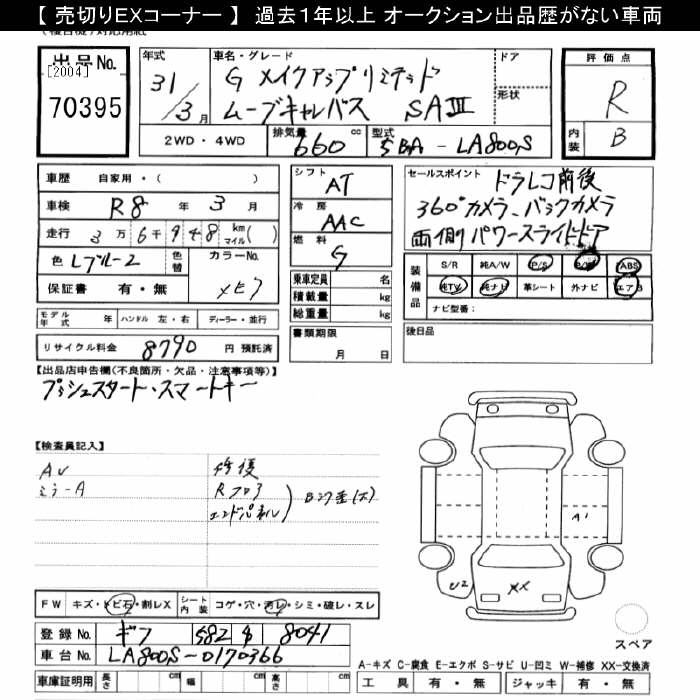 【 売切りEXコーナー 】 過去１年以上 オークション出品歴がない車両
出品No.
[2004]
70395
年式
31/3月
車名・グレード
G メイクアップリミテッド
ムーブキャンバス SAⅢ
ドア
形状
2WD・4WD
排気量
660 cc
型式
5BA - LA800S
評価点
R
内装
B
車歴 自家用・( )
車検 R8 年 3 月
走行 3万6千948 km マイル( )
色 Lブルー2
色替
カラーNo.
メモア
保証書 有・無
モデル年式 年 ハンドル 左・右 ディーラー・並行
リサイクル料金 8790 円 預託済
シフト
AT
冷房
AAC
燃料
G
乗車定員 名
積載量 kg
総重量 kg
書類期限
月 日
セールスポイント
ドラレコ前後
360°カメラ、バックカメラ
両側パワースライドドア
装備品
S/R 純A/W P/S P/W ABS
純TV 純ナビ 革シート 外ナビ エアB
ナビ型番:
後日品
【出品店申告欄(不良箇所・欠品・注意事項等)】
プッシュスタート・スマートキー
【検査員記入】
AU
ミラーA
修復
Rフロア
エンドパネル
Bコア歪(大)
A1
U2
XX
スペア
FW キズ・トビ石・割レX
シート内装 コゲ・穴・汚レ・シミ・破レ・スレ
登録No. ギフ 582 す 8041
車台No. LA800S-0170366
車庫証明用 長さ cm 幅 cm 高さ cm
A-キズ C-腐食 E-エクボ S-サビ U-凹ミ W-補修 XX-交換済
工具 有・無 ジャッキ 有・無